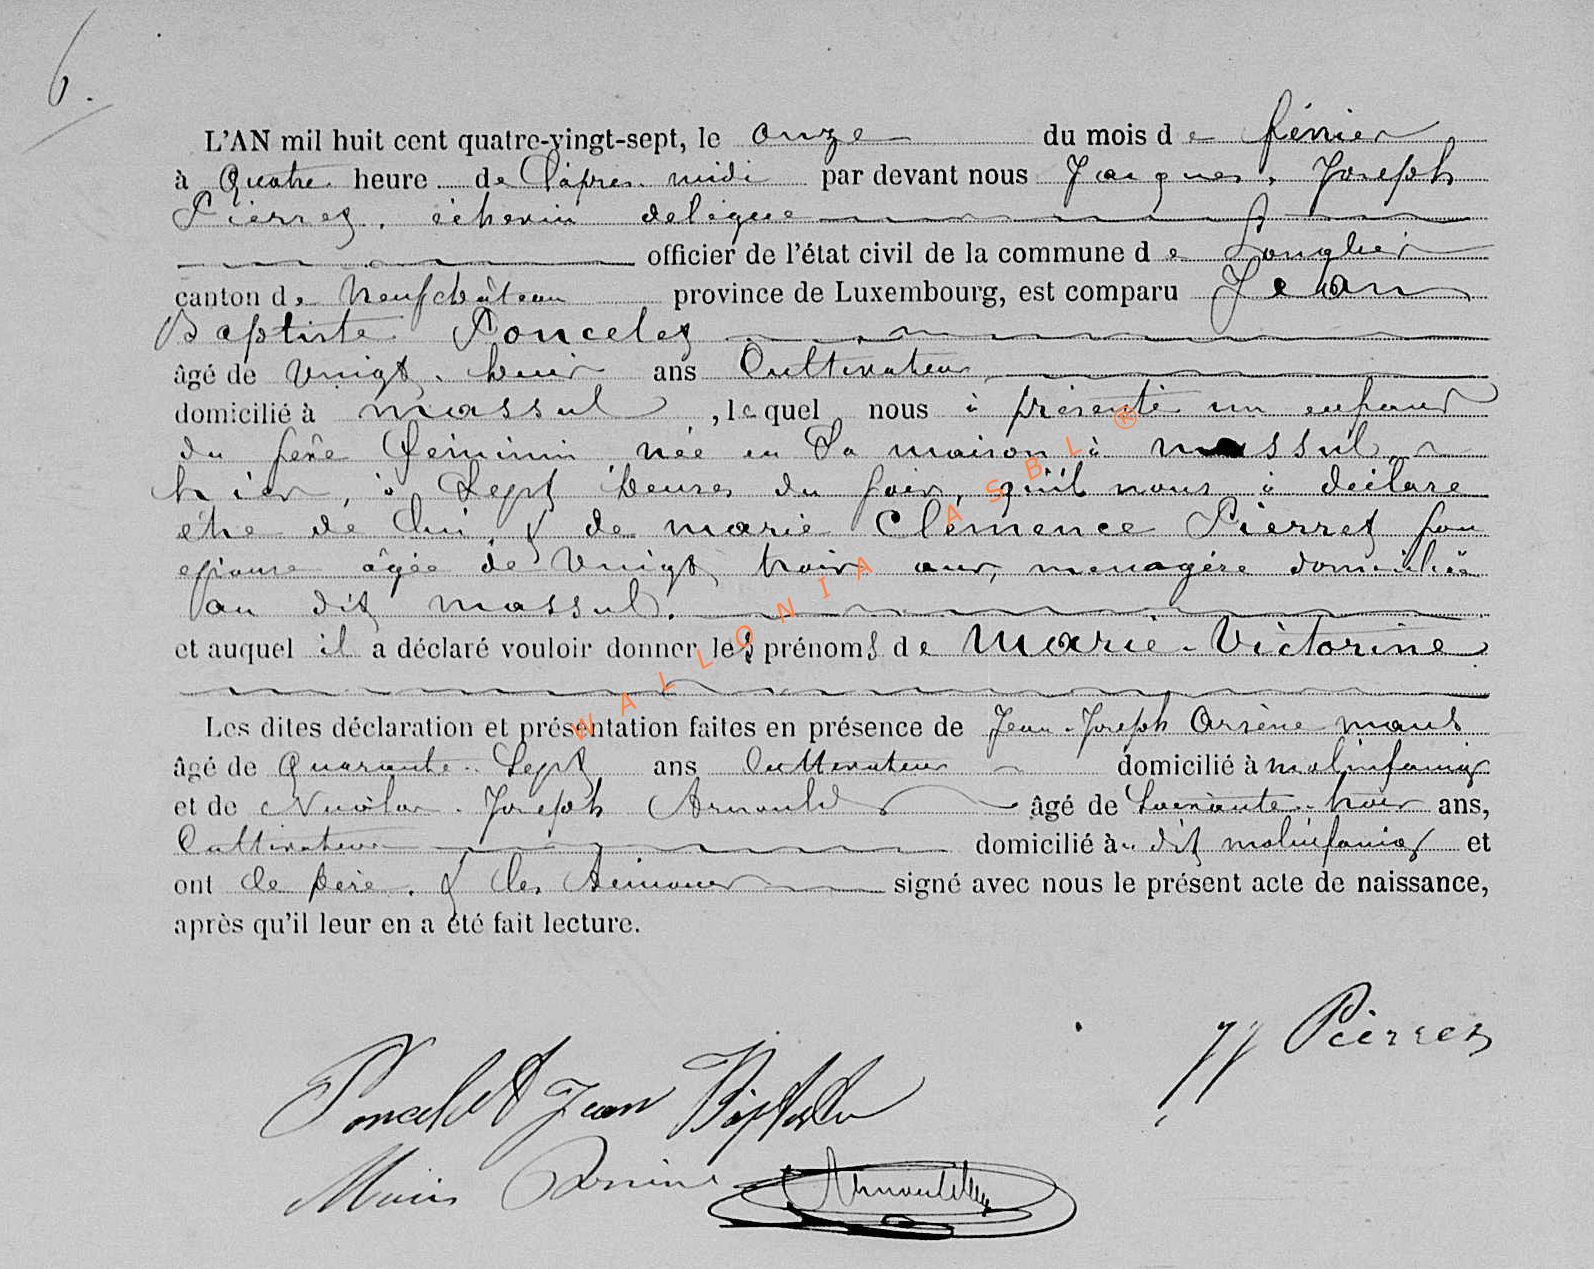 6.
L'AN mil huit cent quatre-vingt-sept, le onze du mois de février
à Quatre heure de l'après-midi par devant nous Jacques, Joseph
Pierret, échevin delégué
officier de l'état civil de la commune de Longlier
canton de Neufchâteau province de Luxembourg, est comparu Jean
Baptiste Poncelet
âgé de Vingt-huit ans Cultivateur
domicilié à Massul, lequel nous à présenté un enfant
du sexe féminin, née en sa maison à Massul
hier, à Sept heures du soir, qu'il nous à déclaré
être de lui & de Marie Clémence Pierret son
epouse âgée de Vingt trois ans, menagère domiciliée
au dit Massul.
et auquel il a déclaré vouloir donner les prénoms de Marie-Victorine
Les dites déclaration et présentation faites en présence de Jean-Joseph Arsène
âgé de Quarante-Sept ans Cultivateur domicilié à Molinfaing
et de Nicolas-Joseph Arnould âgé de Soixante-trois ans,
Cultivateur domicilié au dit Molinfaing et
ont le père, & les témoins signé avec nous le présent acte de naissance,
après qu'il leur en a été fait lecture.
JJ Pierret
Poncelet Jean Baptiste
Arsène Arnould
WALLONIA ASBL ®